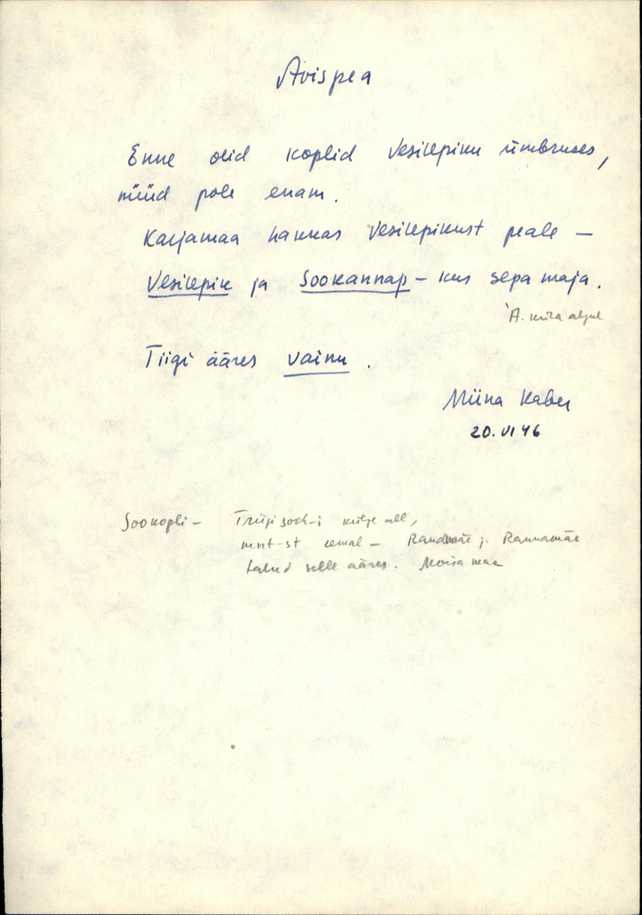 Avispea
Enne olid koplid Vesilepiku ümbruses,
nüüd pole enam.
Karjamaa hakkas Vesilepikust peale —
Vesilepik ja Sookannap — kus sepa maja.
A. küla algul
Tiigi ääres vainu.
Miina Kaber
20.VI 46
Sookopli — külje all,
eemal —
talud selle ääres. Moisa maa